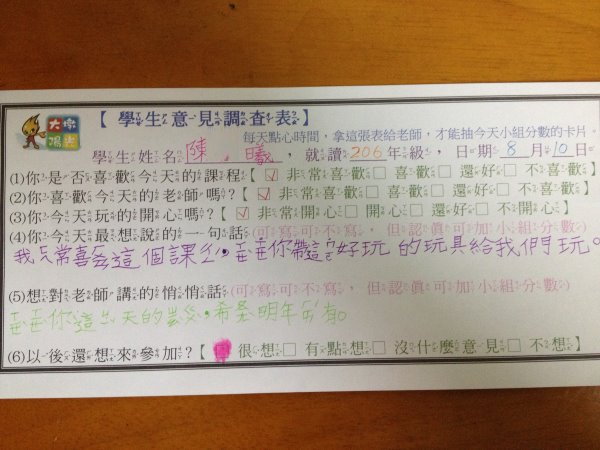 【 學生意見調查表】
每天點心時間，拿這張表給老師，才能抽今天小組分數的卡片。
學生姓名 陳 曦 ，就讀 206 年級，日期 8 月 10 日
(1)你是否喜歡今天的課程【 ☑ 非常喜歡□ 喜歡□ 還好□ 不喜歡□ 】
(2)你喜歡今天的老師嗎?【 ☑ 非常喜歡□ 喜歡□ 還好□ 不喜歡□ 】
(3)你今天玩的開心嗎?【 ☑ 非常開心□ 開心□ 還好□ 不開心□ 】
(4)你今天最想說的一句話(可寫可不寫，但認真可加小組分數)
我 常喜 這個課 ，你帶這 好玩 的玩具給我們玩。
(5)想對老師講的悄悄話(可寫可不寫，但認真可加小組分數)
你這 天的 ，希 明年 有。
(6)以後還想來參加?【 很想□ 有點想□ 沒什麼意見□ 不想□ 】